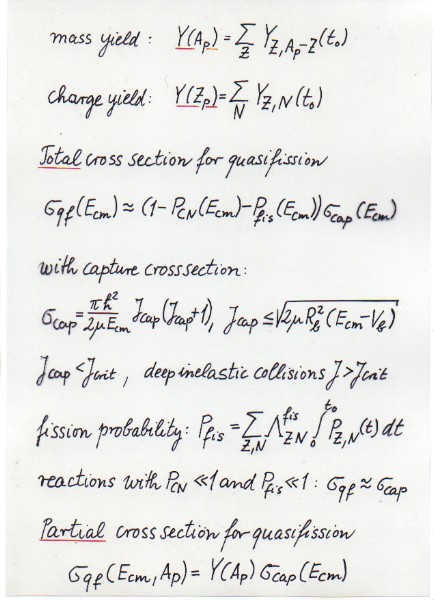 mass yield: Y(A_p) = Σ_Z Y_{Z,A_p-Z}(t_0)
charge yield: Y(Z_p) = Σ_N Y_{Z,N}(t_0)
Total cross section for quasifission
σ_qf(E_cm) ≈ (1 - P_CN(E_cm) - P_fis(E_cm)) σ_cap(E_cm)
with capture crosssection:
σ_cap = πħ²/2μE_cm J_cap(J_cap+1), J_cap ≤ √(2μR_b²(E_cm-V_b))
J_cap < J_crit, deep inelastic collisions J > J_crit
fission probability: P_fis = Σ_{Z,N} Λ_{ZN}^{fis} ∫_0^{t_0} P_{Z,N}(t) dt
reactions with P_CN ≪ 1 and P_fis ≪ 1: σ_qf ≈ σ_cap
Partial cross section for quasifission
σ_qf(E_cm, A_p) = Y(A_p) σ_cap(E_cm)